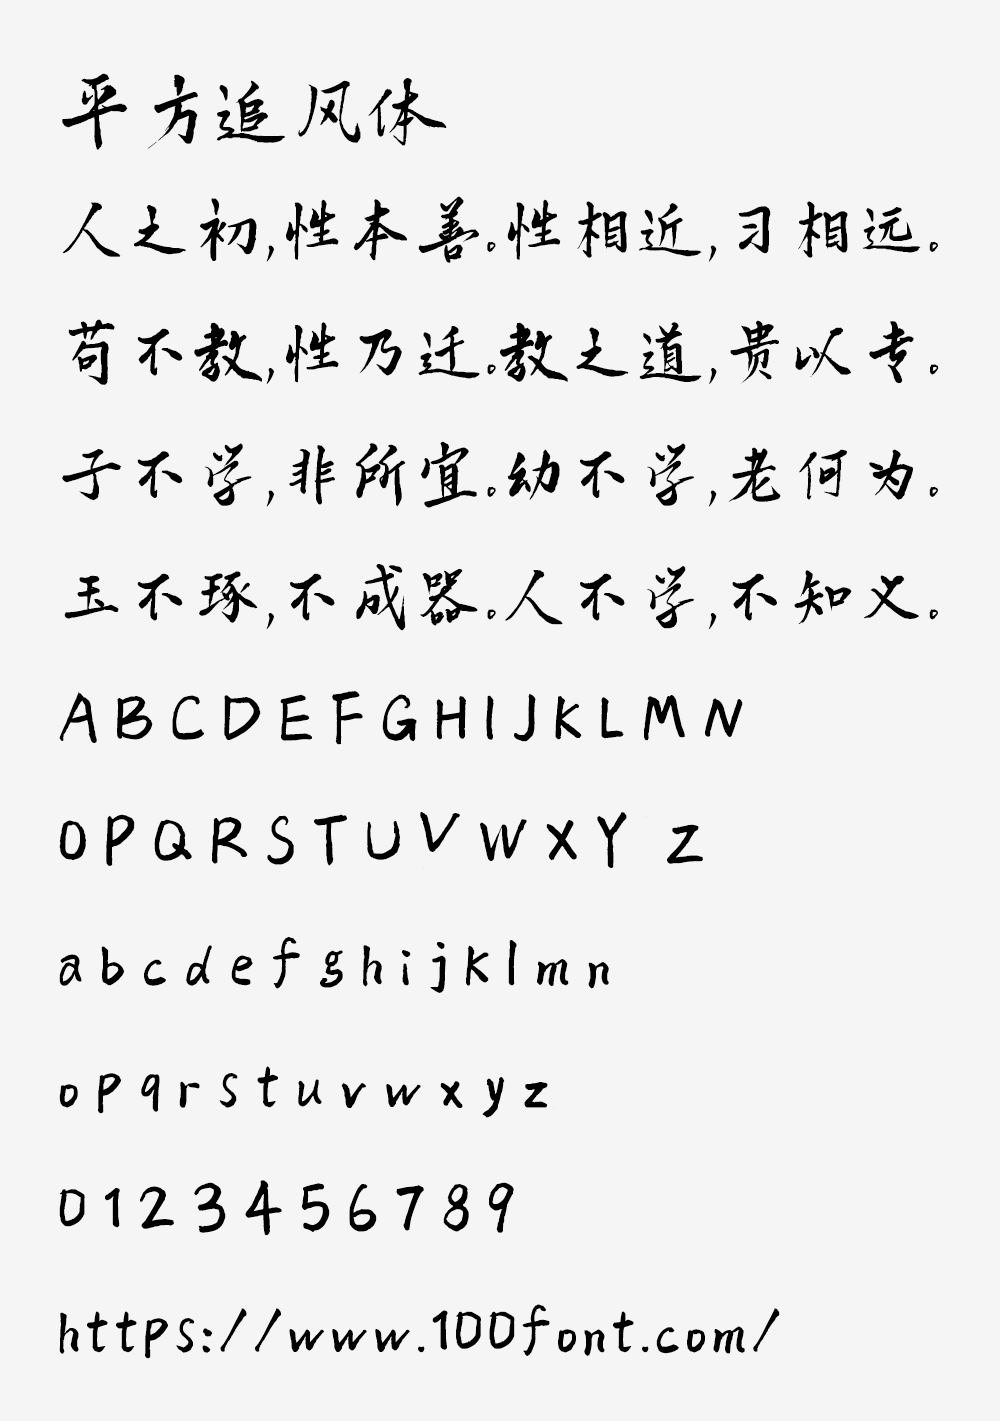 平方追风体
人之初,性本善。性相近,习相远。
苟不教,性乃迁。教之道,贵以专。
子不学,非所宜。幼不学,老何为。
玉不琢,不成器。人不学,不知义。
A B C D E F G H I J K L M N
O P Q R S T U V W X Y Z
a b c d e f g h i j k l m n
o p q r s t u v w x y z
0 1 2 3 4 5 6 7 8 9
https://www.100font.com/